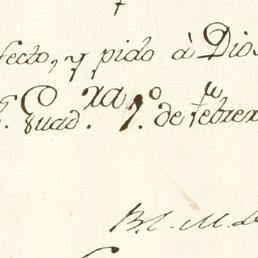 fecto, y pido à Dios
Guad.xa 1.º de febrer
B. L. M. de